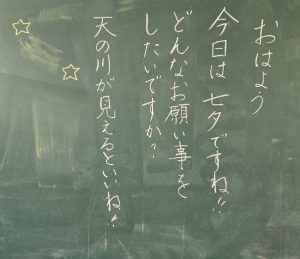 おはよう
今日は七夕ですね!!
どんなお願い事を
したいですか?
天の川が見えるといいね!!